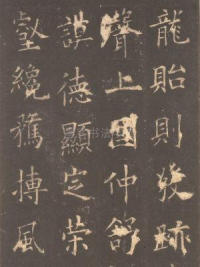 龍貽則發跡
聲上國仲舒
謨德顯定榮
壑纔搏風